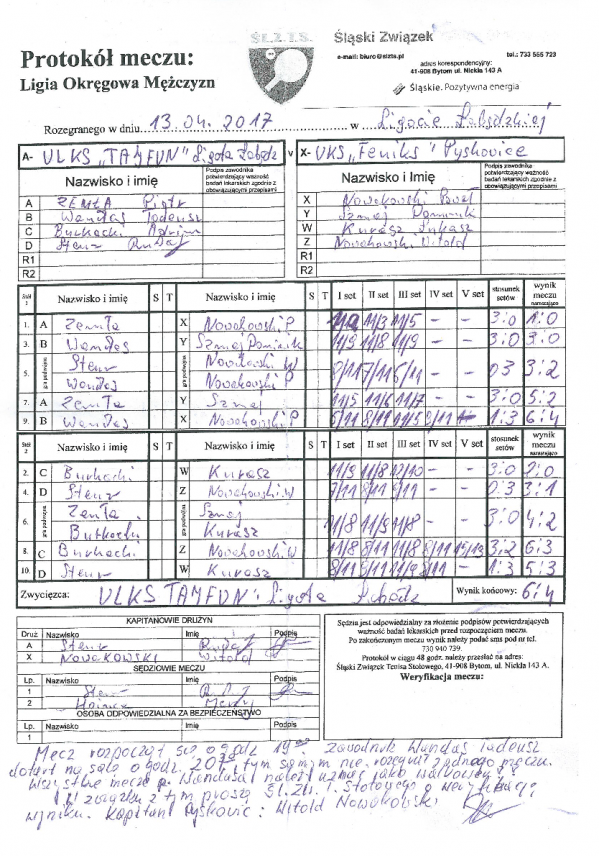 ŚL.Z.T.S.
Śląski Związek
Protokół meczu:
Ligia Okręgowa Mężczyzn
e-mail: biuro@slzts.pl
tel.: 733 555 723
adres korespondencyjny:
41-908 Bytom ul. Nickla 143 A
Śląskie. Pozytywna energia
Rozegranego w dniu 13.04.2017 w Ligocie Łabędzkiej
A- ULKS "TAJFUN" Ligota Łabędz v X- UKS "Feniks" Pyskowice
Nazwisko i imię Podpis zawodnika potwierdzający ważność badań lekarskich zgodnie z obowiązującymi przepisami Nazwisko i imię Podpis zawodnika potwierdzający ważność badań lekarskich zgodnie z obowiązującymi przepisami
A ZEMŁA Piotr X Nowakowski Paweł
B Wandas Tadeusz Y Szmaj Dominik
C Burkacki W Kurasz Łukasz
D Stenz Z Nowakowski Witold
R1 R1
R2 R2
Stół 1 Nazwisko i imię S T Nazwisko i imię S T I set II set III set IV set V set stosunek setów wynik meczu narastająco
1. A Zemła X Nowakowski P. 11/3 11/5 - - 3:0 1:0
3. B Wandas Y Szmaj Dominik 11/9 11/8 11/9 - - 3:0 3:0
5. gra podwójna Stenz Nowakowski W
Wandas Nowakowski P 8/11 7/11 6/11 - - 0:3 3:2
7. A Zemła Y Szmaj 11/5 11/6 11/7 - - 3:0 5:2
9. B Wandas X Nowakowski P 6/11 8/11 11/5 8/11 - 1:3 6:4
Stół 2 Nazwisko i imię S T Nazwisko i imię S T I set II set III set IV set V set stosunek setów wynik meczu narastająco
2. C Burkacki W Kurasz 11/9 11/8 12/10 - - 3:0 2:0
4. D Stenz Z Nowakowski W 7/11 8/11 9/11 - - 0:3 3:1
6. gra podwójna Zemła Szmaj
Burkacki Kurasz 11/8 11/9 11/8 - - 3:0 4:2
8. C Burkacki Z Nowakowski W 11/8 8/11 11/8 8/11 15/13 3:2 6:3
10. D Stenz W Kurasz 8/11 6/11 11/9 8/11 - 1:3 5:3
Zwycięzca: ULKS TAJFUN Ligota Łabędz Wynik końcowy: 6:4
KAPITANOWIE DRUŻYN
Druż Nazwisko Imię Podpis
A Stenz
X NOWAKOWSKI Witold
SĘDZIOWIE MECZU
Lp. Nazwisko Imię Podpis
1 Stenz
2
OSOBA ODPOWIEDZIALNA ZA BEZPIECZEŃSTWO
Lp. Nazwisko Imię Podpis
1
Sędzia jest odpowiedzialny za złożenie podpisów potwierdzających
ważność badań lekarskich przed rozpoczęciem meczu.
Po zakończonym meczu wynik należy podać sms pod nr tel.
730 940 739.
Protokół w ciągu 48 godz. należy przesłać na adres:
Śląski Związek Tenisa Stołowego, 41-908 Bytom, ul. Nickla 143 A.
Weryfikacja meczu:
Mecz rozpoczął się o godz 19:00 zawodnik Wandas Tadeusz
dotarł na salę o godz. 20: tym samym nie rozegrał żadnego meczu.
Wszystkie mecze p. Wandasa należy uznać jako walkowery!
W związku z tym proszę Śl. Zw. T. Stołowego o weryfikację
wyniku. Kapitan Pyskowic: Witold Nowakowski